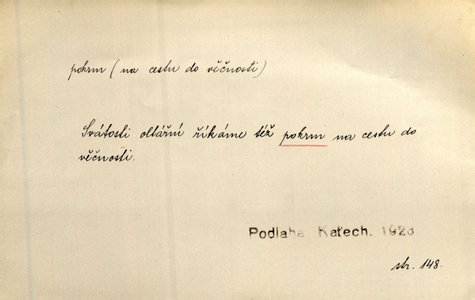 pokrm (na cestu do věčnosti)
Svátosti oltářní říkáme též pokrm na cestu do
věčnosti.
Podlaha Katech. 1923
str. 148.